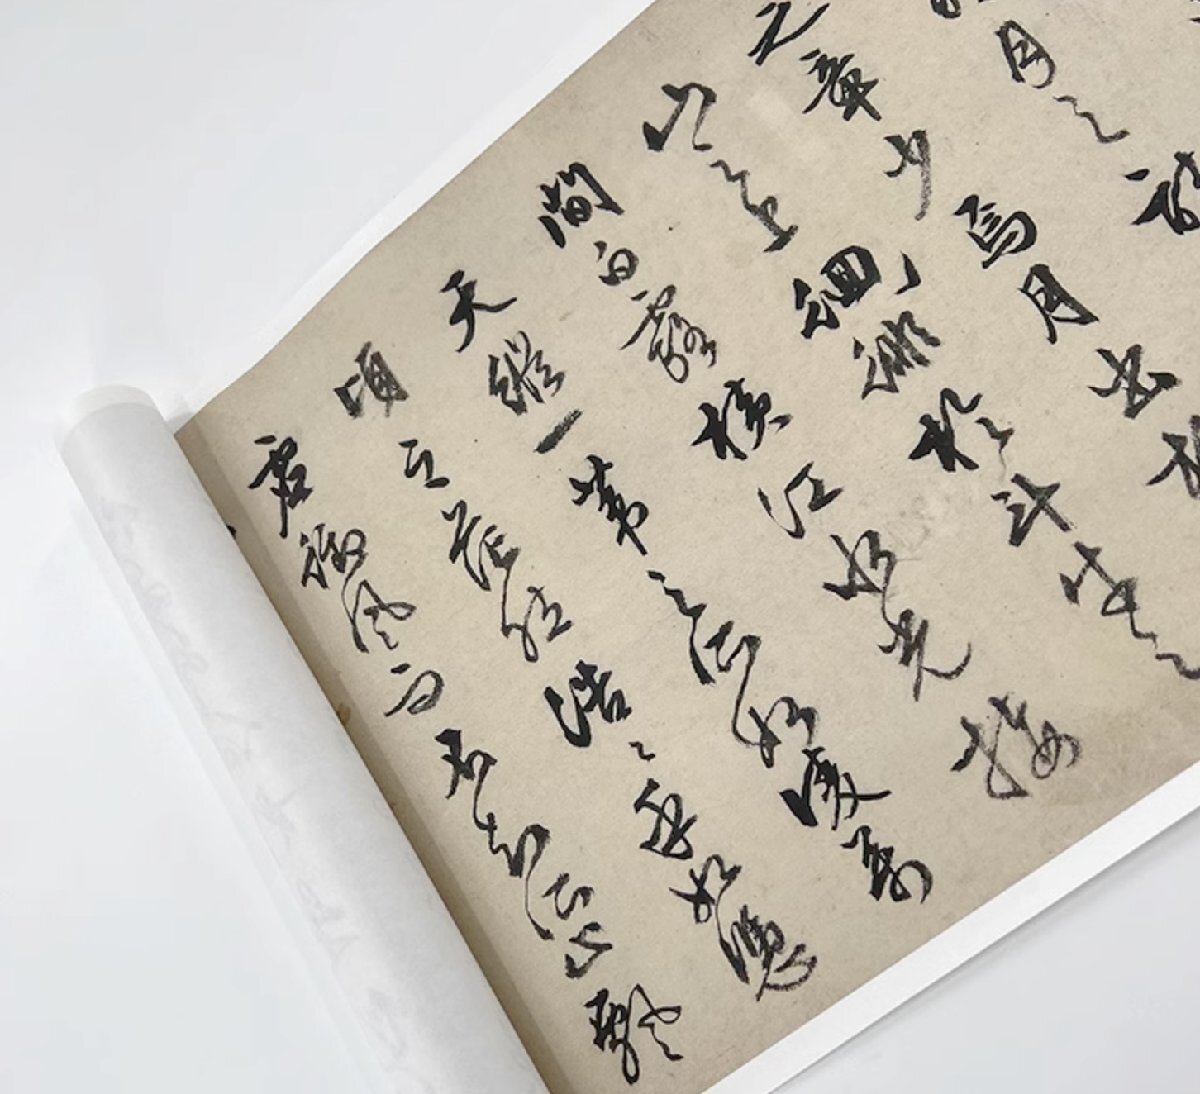 月之詩
之章少焉月出於
山之上徘徊於斗牛之
間白露橫江水光接
天縱一葦之所如凌萬
頃之茫然浩〻乎如馮
虛御風而不知其所止飄